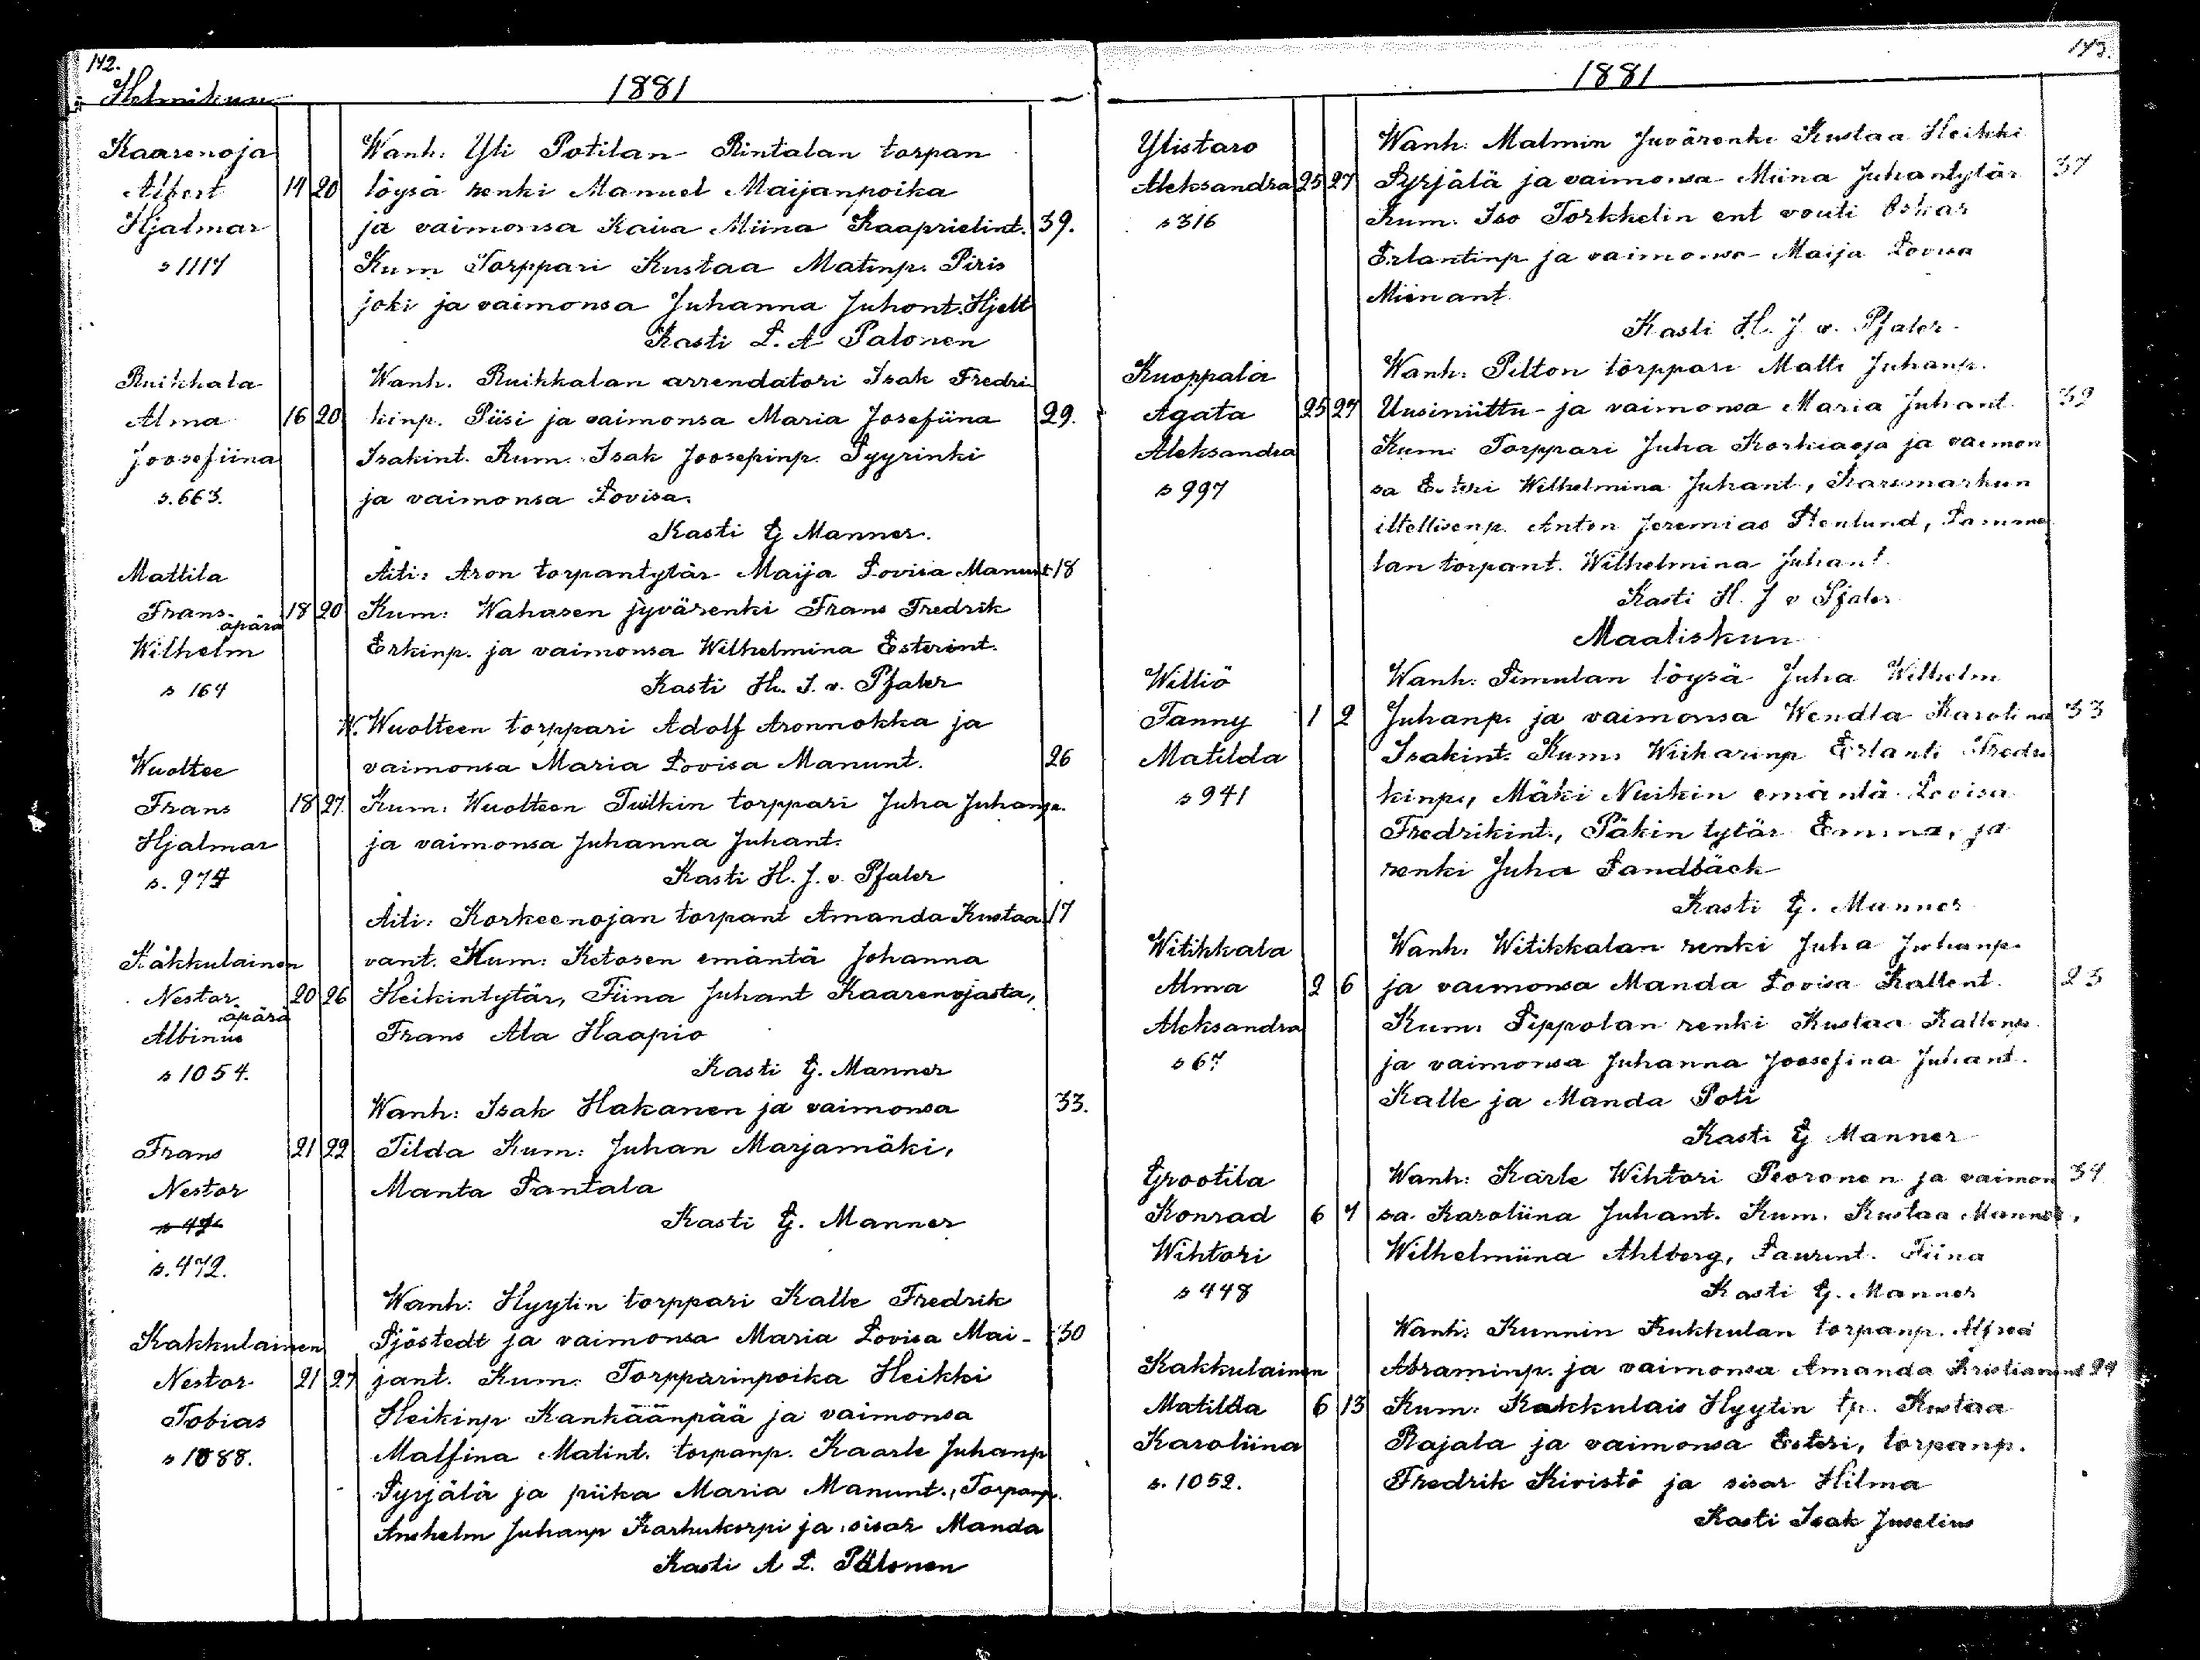 142.
1881
Helmikuu
Kaarenoja
Wanh: Yli Potilan Rintalan torpan
Albert 14 20 löysä renki Manuel Maijanpoika
Hjalmar ja vaimonsa Kaisa Miina Kaaprielint. 39.
s 1117 Kum Torppari Kustaa Matinp. Piris
joki ja vaimonsa Juhanna Juhont. Hjelt
Kasti L. A Palonen
Ruikkala Wanh. Ruikkalan arrendatori Isak Fredri
Alma 16 20 kinp. Piisi ja vaimonsa Maria Josefiina 29.
Joosefiina Isakint. Kum. Isak Joosepinp. Syyrinki
s. 663. ja vaimonsa Lovisa.
Kasti G Manner.
Mattila Äiti: Aron torpantytär Maija Lovisa Manunt 18
Frans 18 20 Kum: Wahasen jyvärenki Frans Fredrik
äpärä
Wilhelm Erkinp. ja vaimonsa Wilhelmina Esterint.
s 164 Kasti H. J. v. Pfaler
W. Wuolteen torppari Adolf Aronnokka ja
Wuoltee vaimonsa Maria Lovisa Manunt. 26
Frans 18 27. Kum: Wuolteen Tuilkin torppari Juha Juhanp.
Hjalmar ja vaimonsa Juhanna Juhant.
s. 974 Kasti H. J. v. Pfaler
Äiti: Korkeenojan torpant Amanda Kustaa 17
Kakkulainen vant. Kum: Ketosen emäntä Johanna
Nestor 20 26 Heikintytär, Fiina Juhant Kaarenojasta,
äpärä
Albinus Frans Ala Haapio
s 1054. Kasti G. Manner
Wanh: Isak Hakanen ja vaimonsa 33.
Frans 21 22 Tilda Kum: Juhan Marjamäki,
Nestor Manta Santala
s 472 Kasti G. Manner
s. 472.
Wanh: Hyytin torppari Kalle Fredrik
Kakkulainen Sjöstedt ja vaimonsa Maria Lovisa Mai- 30
Nestor 21 27 jant. Kum: Torpparinpoika Heikki
Tobias Heikinp Kankäänpää ja vaimonsa
s 1088. Malfina Matint. torpanp. Kaarle Juhanp
Syrjälä ja piika Maria Manunt., Torpanp.
Anshelm Juhanp Karhukorpi ja sisar Manda
Kasti A L. Palonen
143.
1881
Ylistaro Wanh: Malmin Juvärenki Kustaa Heikki
Aleksandra 25 27 Syrjälä ja vaimonsa Miina Juhantytär 37
s 316 Kum. Iso Torkkelin ent vouti Oskar
Erlantinp ja vaimonsa Maija Lovisa
Miinant.
Kasti H. J. v. Pfaler.
Kuoppala Wanh: Pelton torppari Matti Juhanp.
Agata 25 27 Uusiniittu ja vaimonsa Maria Juhant. 39
Aleksandra Kum: Torppari Juha Korkiaoja ja vaimon
s 997 sa Esteri Wilhelmina Juhant, Karsmarkun
itellisenp. Anton Jeremias Stenlund, Samma
lan torpant. Wilhelmina Juhant.
Kasti H. J v Pfaler
Maaliskuu
Williö Wanh: Simulan löysä Juha Wilhelm
Fanny 1 2 Juhanp. ja vaimonsa Wendla Karolina 33
Matilda Isakint. Kum: Wiikarinp Erlanti Fredri
s 941 kinp., Mäki Nuikin emäntä Lovisa
Fredrikint., Päkin tytär Emma, ja
renki Juha Sandbäck
Kasti G. Manner
Witikkala Wanh. Witikkalan renki Juha Juhanp.
Alma 2 6 ja vaimonsa Manda Lovisa Kallent. 23
Aleksandra Kum: Seppolan renki Kustaa Kallenp.
s 67 ja vaimonsa Juhanna Joosefina Juhant.
Kalle ja Manda Poti
Kasti G Manner
Grootila Wanh: Karle Wihtori Peoronen ja vaimon 34
Konrad 6 7 sa. Karoliina Juhant. Kum. Kustaa Manner,
Wihtori Wilhelmiina Ahlberg, Laurint. Fiina
s 448 Kasti G. Manner
Wanh: Kunnin Kukkulan torpanp. Alfred
Kakkulainen Abraminp. ja vaimonsa Amanda Kristianint 24
Matilda 6 13 Kum: Kakkulais Hyytin tp. Kustaa
Karoliina Rajala ja vaimonsa Esteri, torpanp.
s. 1052. Fredrik Kivistö ja sisar Hilma
Kasti Isak Juselius